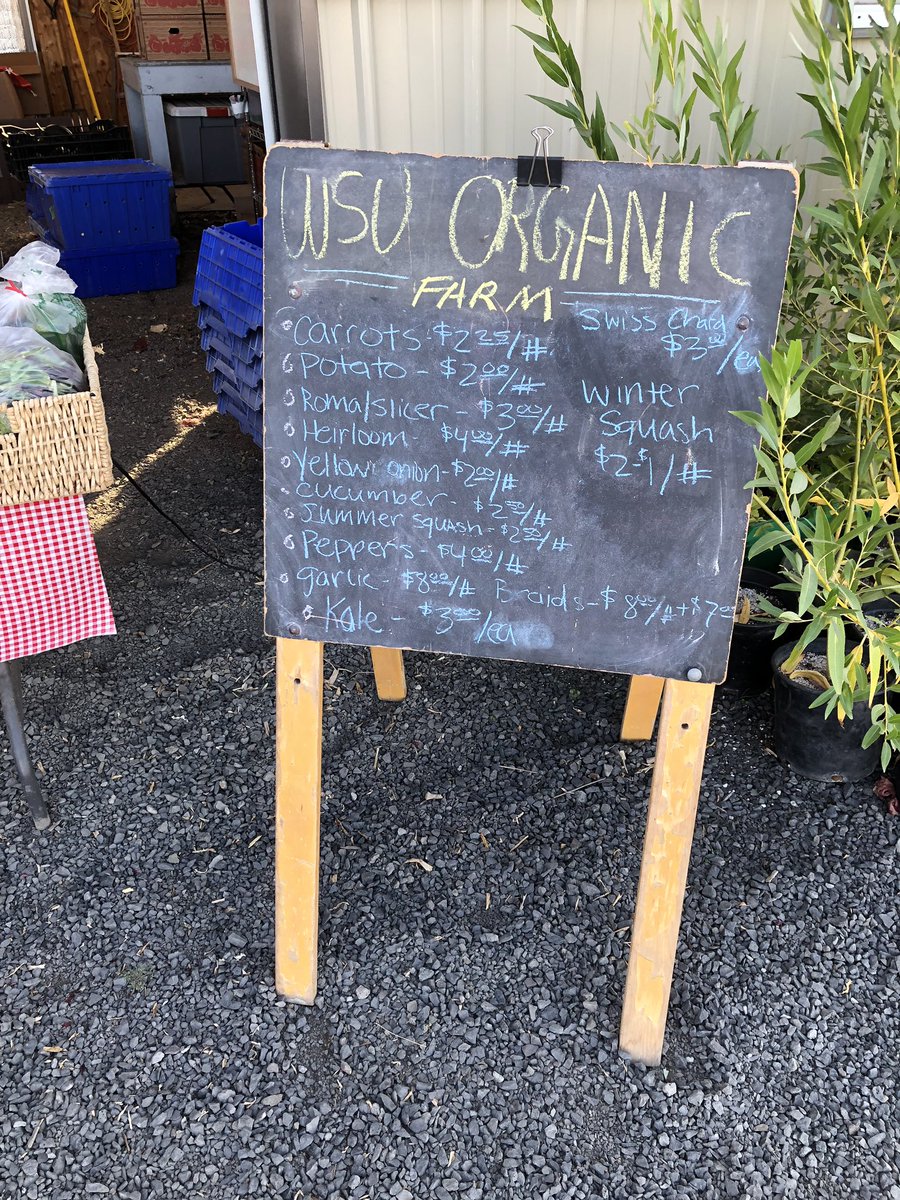 WSU ORGANIC
FARM
Carrots - $2.25/#
Potato - $2.00/#
Roma/slicer - $3.00/#
Heirloom - $4.00/#
Yellow onion - $2.00/#
Cucumber - $2.50/#
Summer squash - $2.50/#
Peppers - $4.00/#
garlic - $8.00/# Braids - $8.00/# + $7.00
Kale - $3.00/ea
Swiss Chard
$3.00/ea
Winter
Squash
$2-$1/#